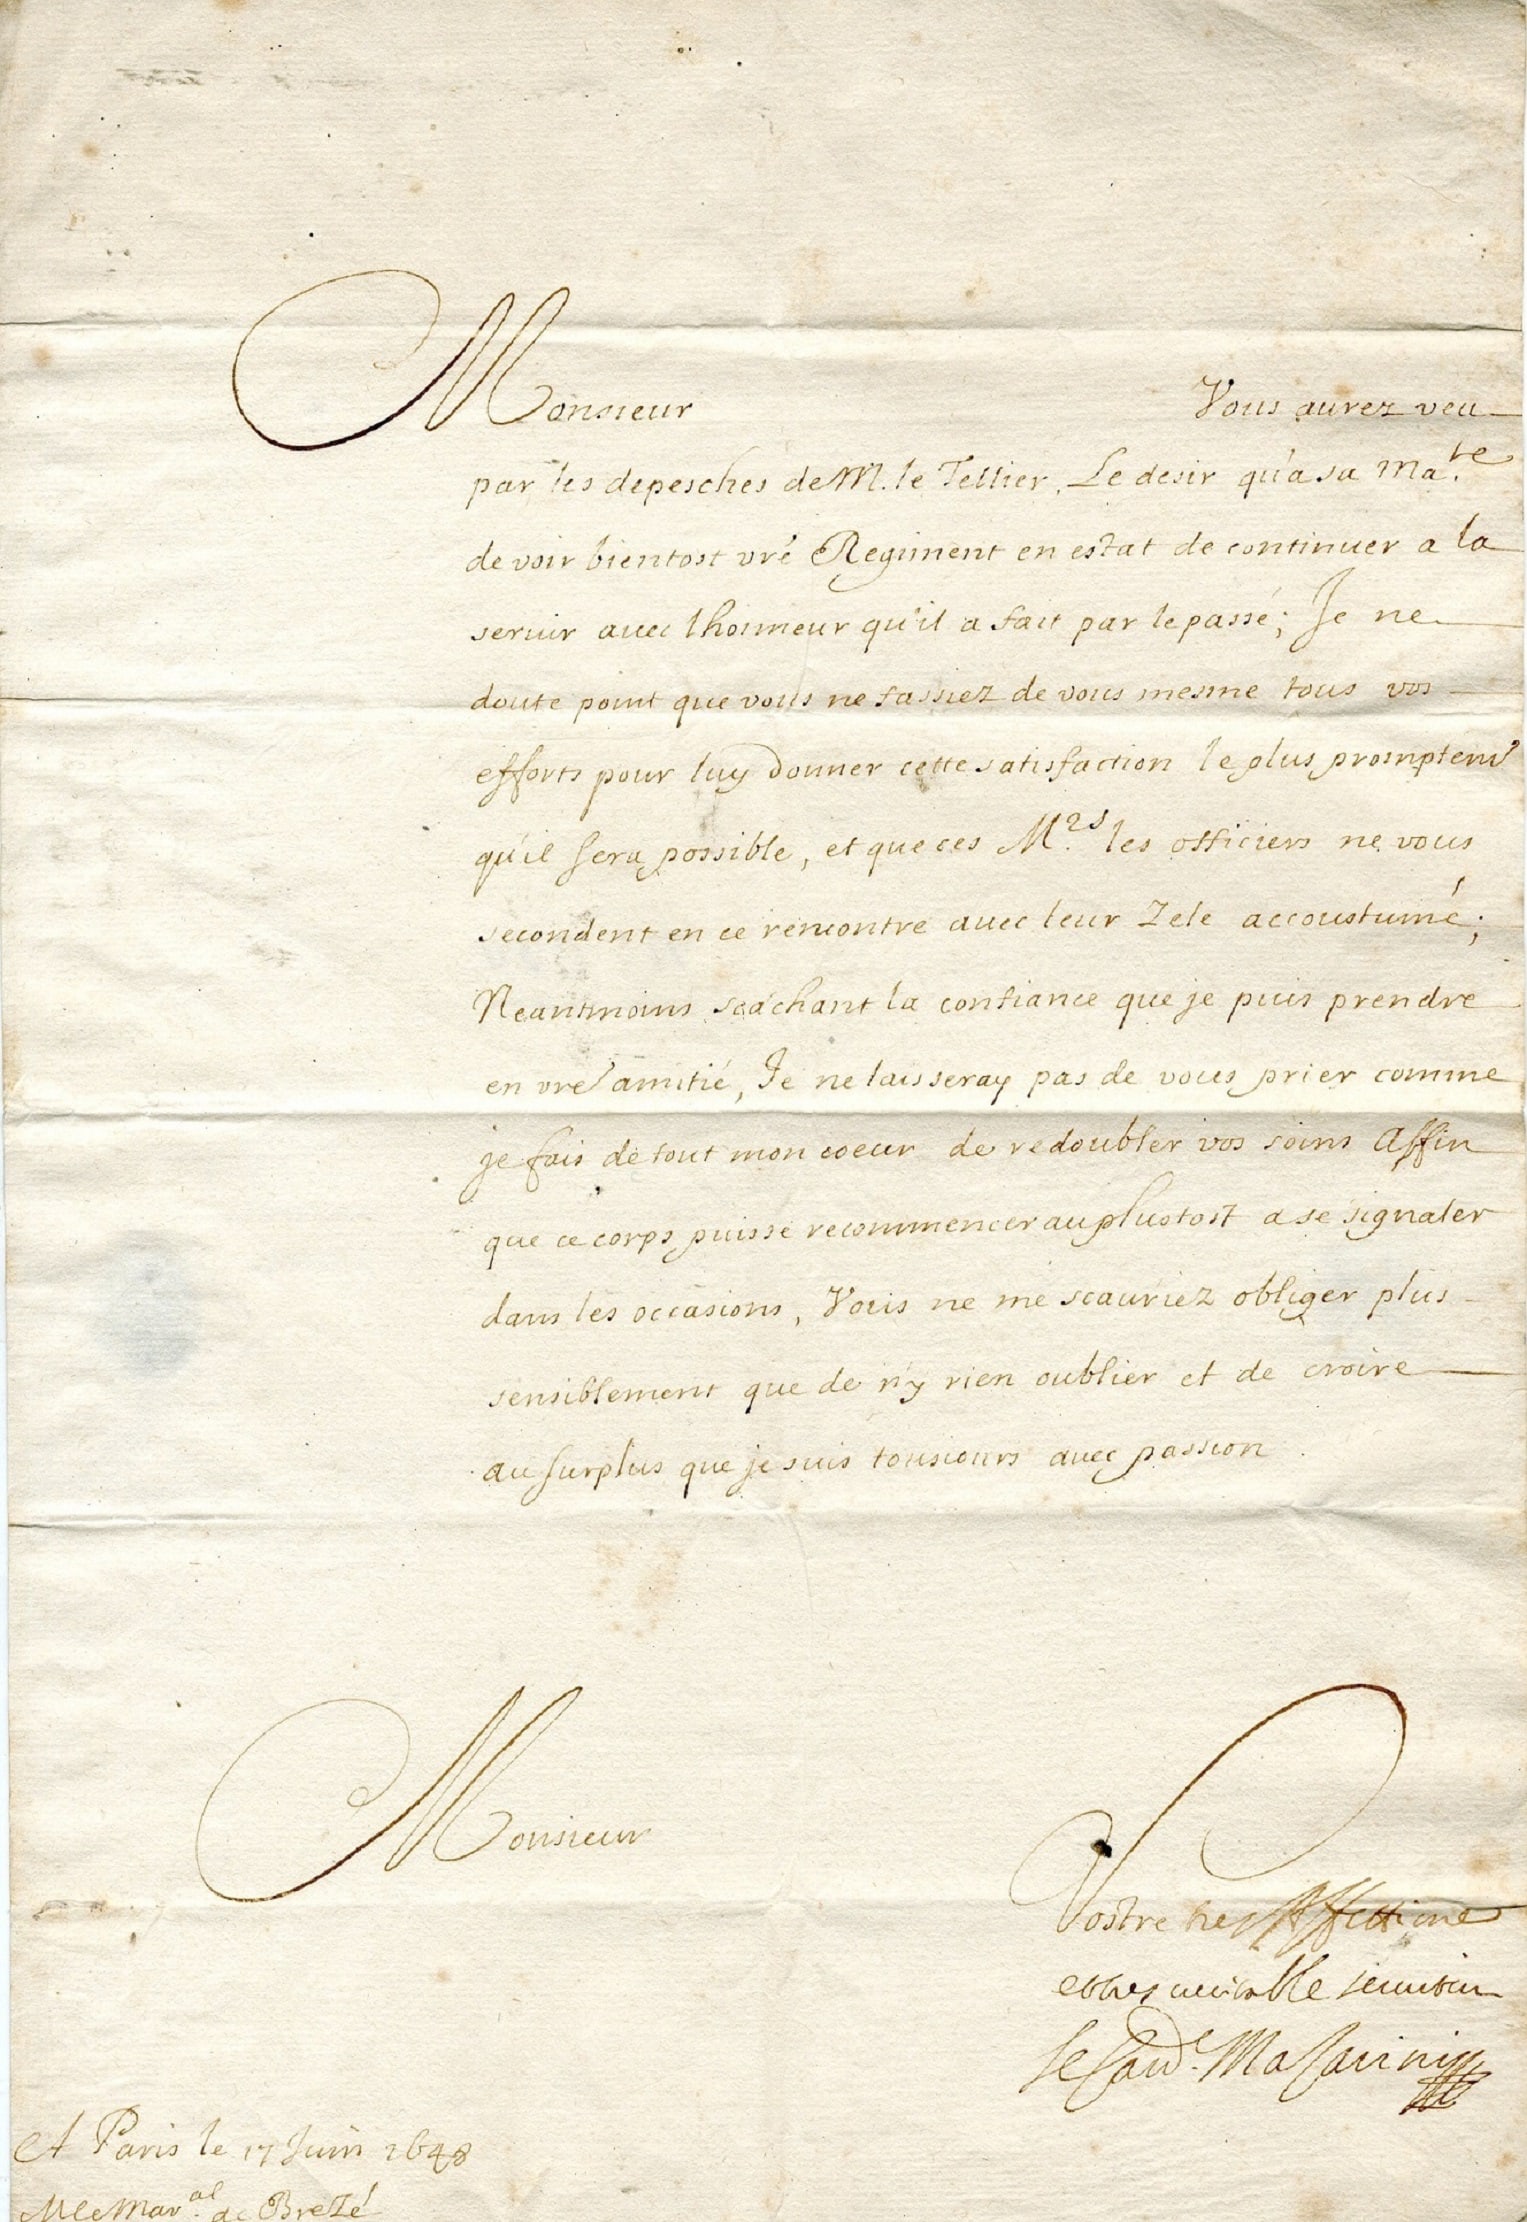 Monsieur Vous aurez veu
par les depesches de M. le Tellier, Le desir qu'a sa Ma.te
de voir bientost vre Regiment en estat de continuer a la
seruir auec lhonneur qu'il a fait par le passé; Je ne
doute point que vous ne fassiez de vous mesme tous vos
efforts pour luy donner cette satisfaction le plus promptemt
qu'il sera possible, et que ces M.rs les officiers ne vous
secondent en ce rencontre auec leur Zele accoustumé;
Neantmoins scachant la confiance que je puis prendre
en vre amitié, Je ne laisseray pas de vous prier comme
je fais de tout mon coeur de redoubler vos soins Affin
que ce corps puisse recommencer au plustost a se signaler
dans les occasions, Vous ne me scauriez obliger plus
sensiblement que de n'y rien oublier et de croire
au surplus que je suis tousiours auec passion
Monsieur
Vostre tres Affectione
et tres ueritable seruiteur
le Card.le Mazarini
A Paris le 17 Juin 1648
M le Mar.al de Brezé